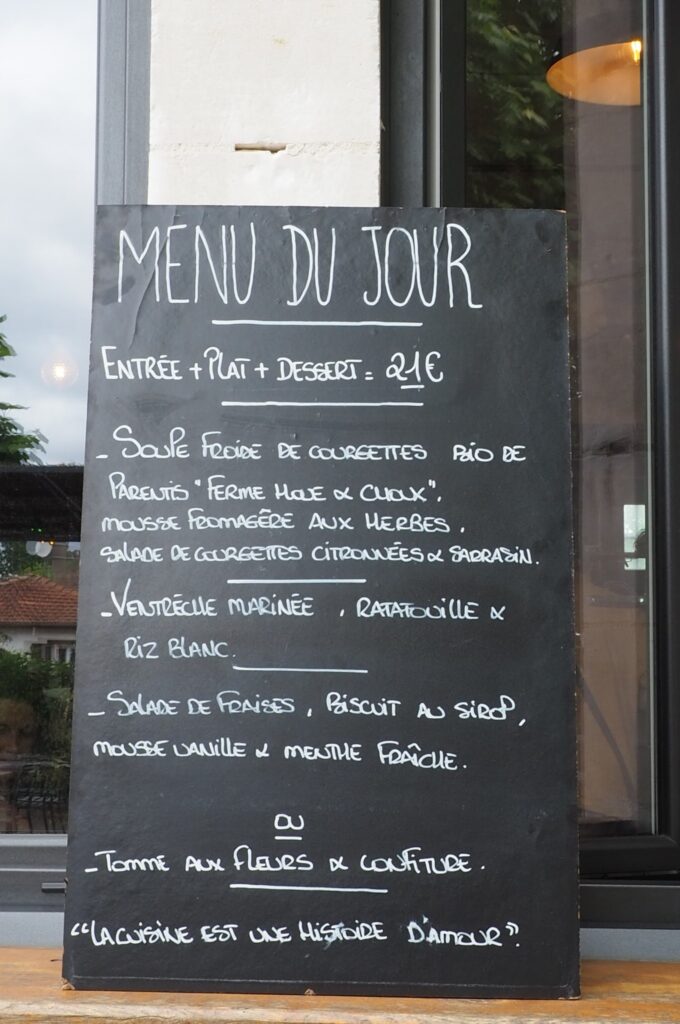 MENU DU JOUR
ENTRÉE + PLAT + DESSERT = 21€
- SOUPE FROIDE DE COURGETTES BIO DE
PARENTIS "FERME HOUE & CHOUX".
MOUSSE FROMAGÈRE AUX HERBES,
SALADE DE COURGETTES CITRONNÉES & SARRASIN.
- VENTRÈCHE MARINÉE, RATATOUILLE &
RIZ BLANC.
- SALADE DE FRAISES, BISCUIT AU SIROP,
MOUSSE VANILLE & MENTHE FRAÎCHE.
OU
- TOMME AUX FLEURS & CONFITURE.
"LA CUISINE EST UNE HISTOIRE D'AMOUR".